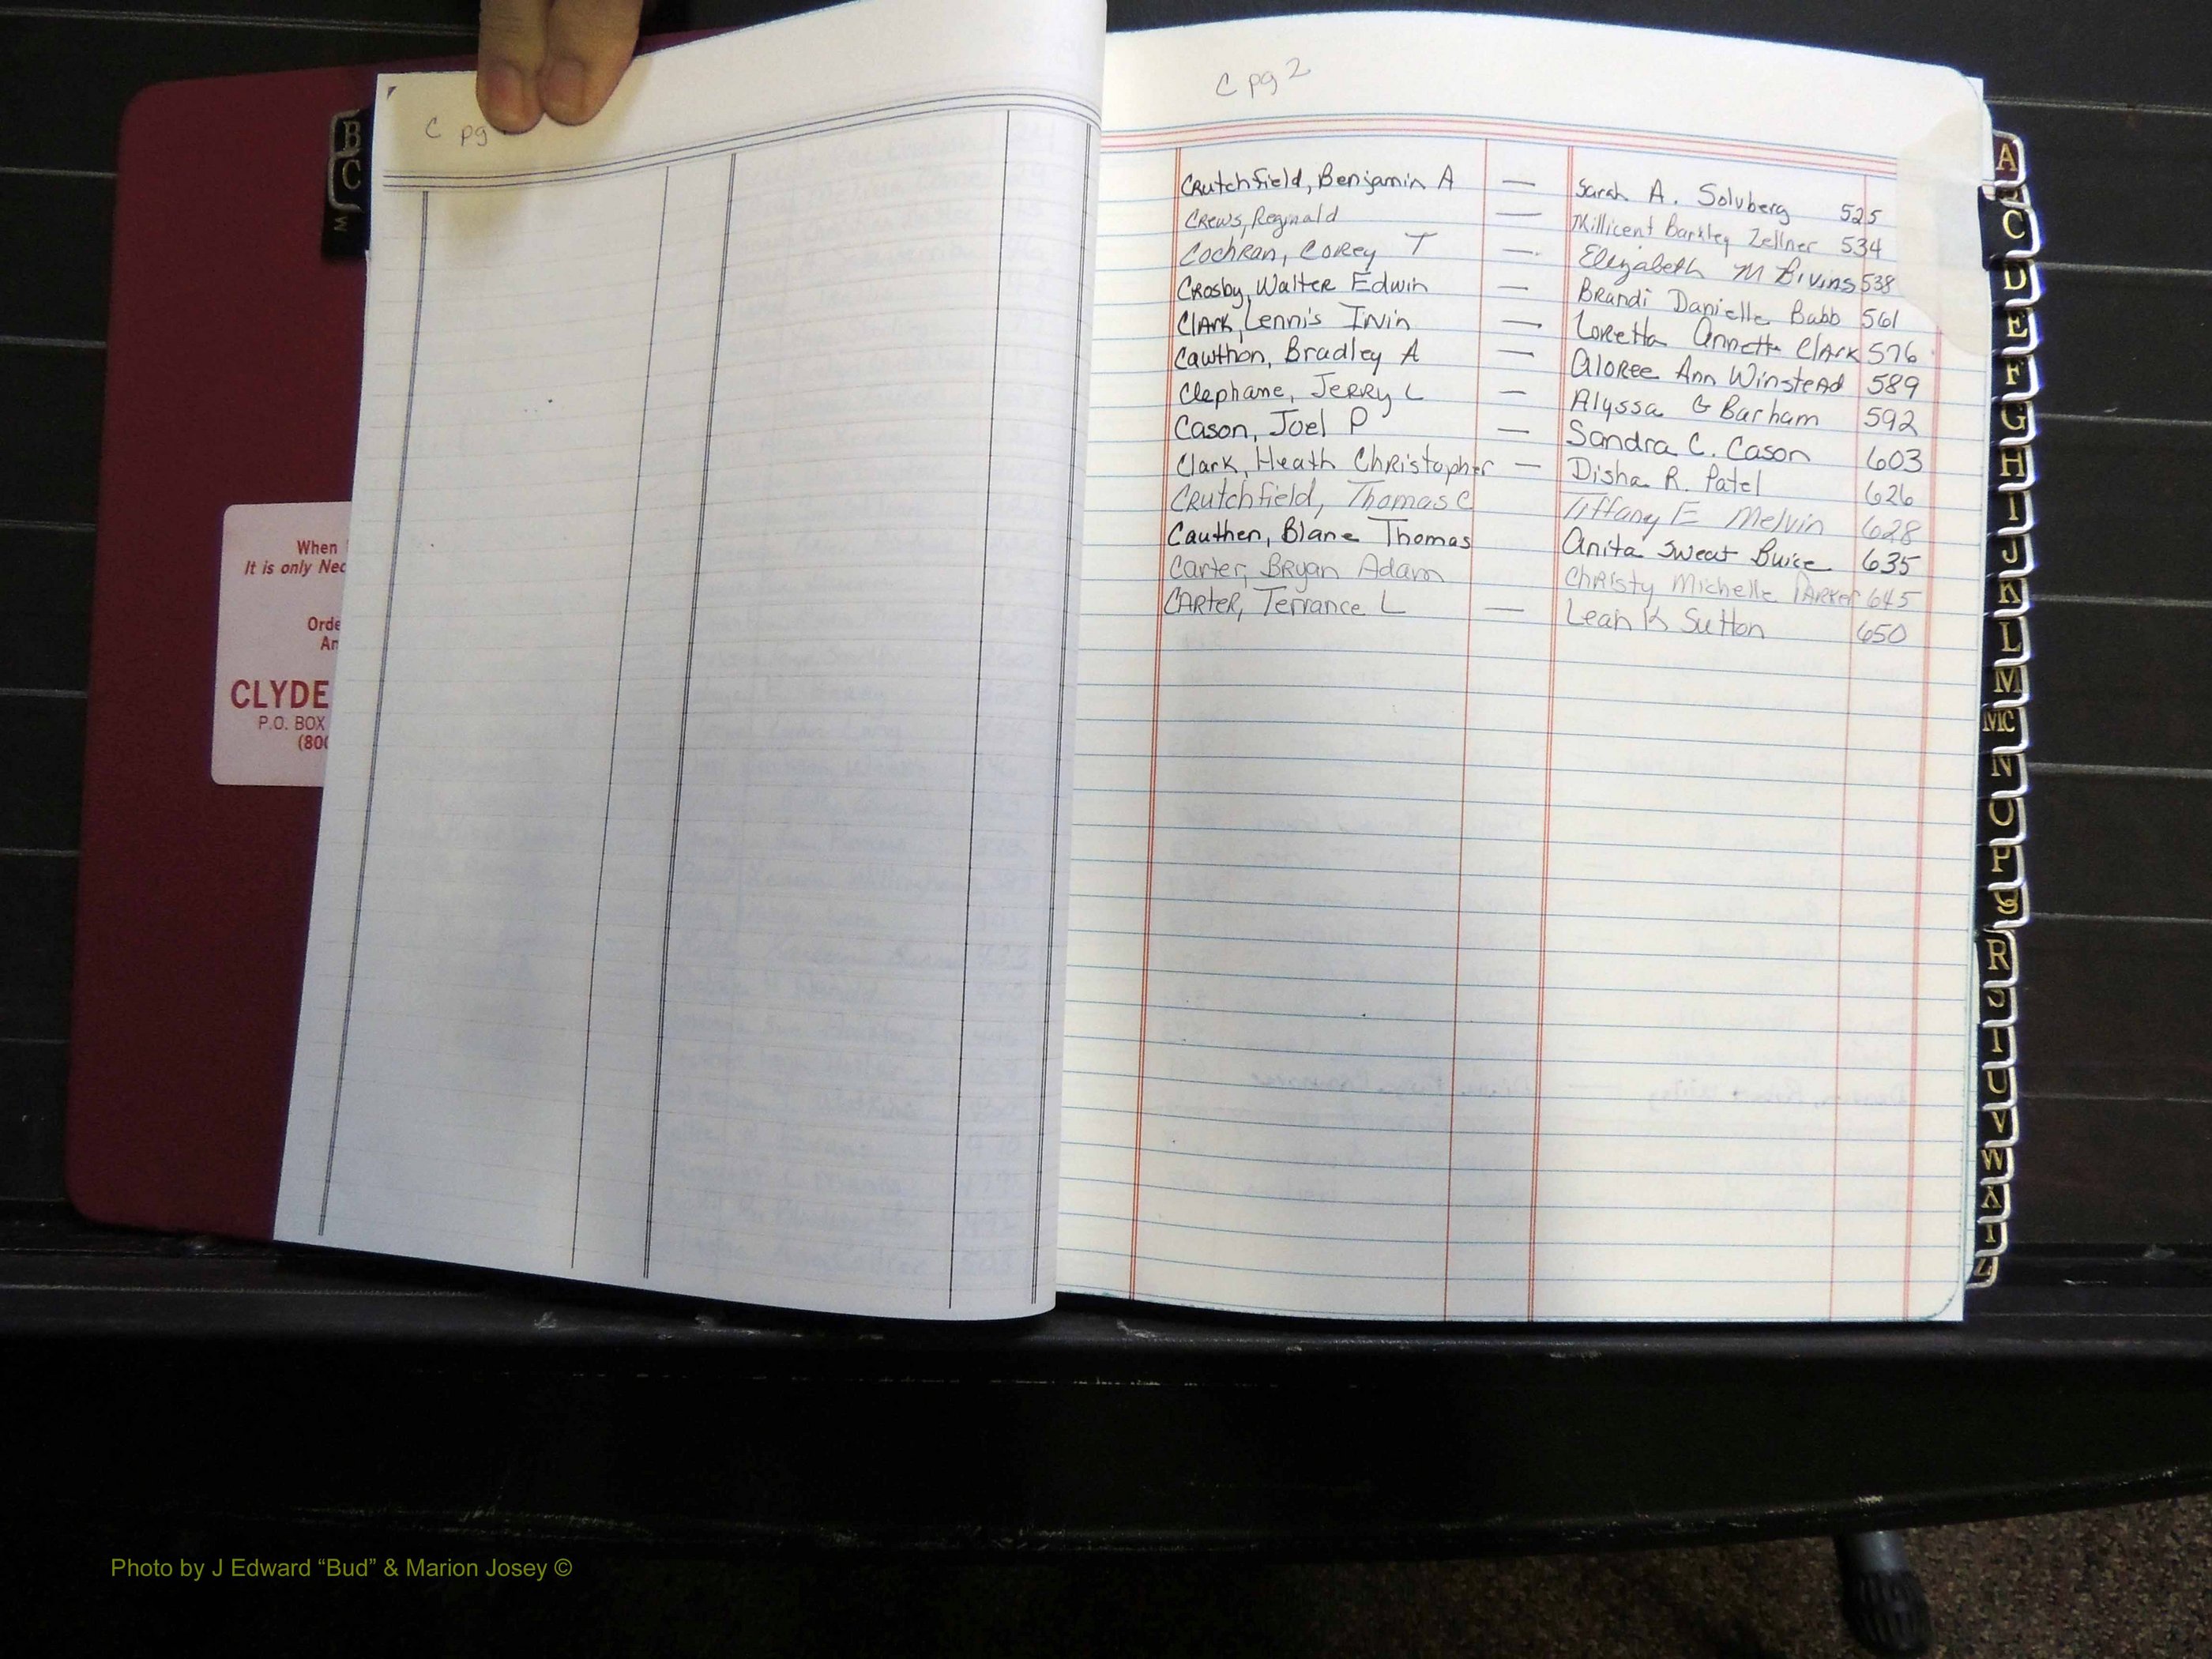 C pg
B
C
M
When
It is only Nec
Orde
An
CLYDE
P.O. BOX
(800
C pg 2
Crutchfield, Benjamin A — Sarah A. Solvberg 525
Crews, Reginald — Millicent Barkley Zellner 534
Cochran, Corey T — Elizabeth M Bivins 538
Crosby, Walter Edwin — Brandi Danielle Babb 561
Clark, Lennis Irvin — Loretta Annette Clark 576
Cawthon, Bradley A — Gloree Ann Winstead 589
Clephane, Jerry L — Alyssa G Barham 592
Cason, Joel P — Sandra C. Cason 603
Clark, Heath Christopher — Disha R. Patel 626
Crutchfield, Thomas C Tiffany E Melvin 628
Cauthen, Blane Thomas Anita Sweat Buice 635
Carter, Bryan Adam Christy Michelle Parker 645
Carter, Terrance L — Leah K Sutton 650
A
C
D
E
F
G
H
I
J
K
L
M
MC
N
O
P
Q
R
S
T
U
V
W
X
Y
Z
Photo by J Edward “Bud” & Marion Josey ©